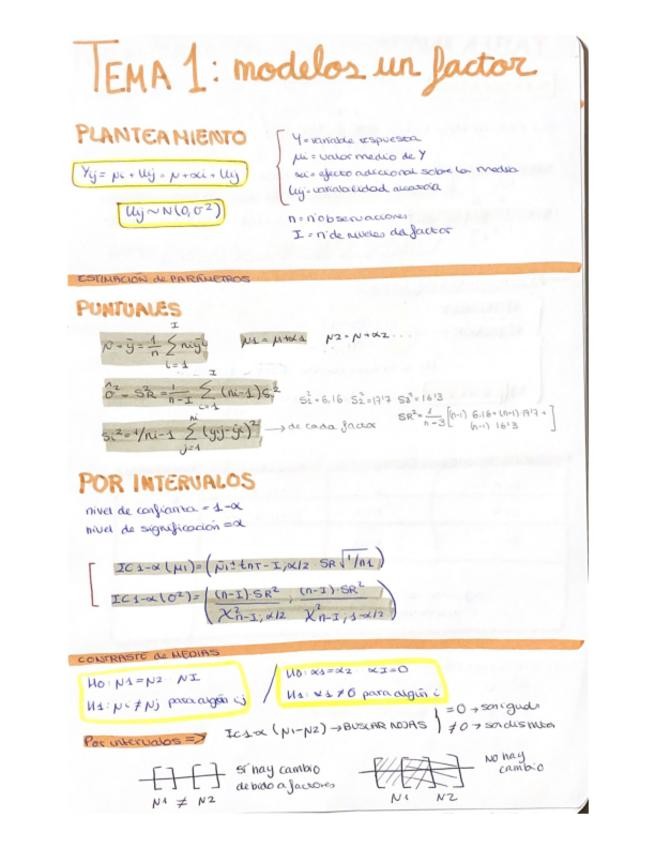 TEMA 1: modelos un factor
PLANTEAMIENTO
Yij = μi + Uij = μ + αi + Uij
Uij ~ N(0, σ²)
Y = variable respuesta
μi = valor medio de Y
αi = efecto adicional sobre la media
Uij = variabilidad aleatoria
n = nº observaciones
I = nº de niveles del factor
ESTIMACIÓN de PARÁMETROS
PUNTUALES
μ = ȳ = 1/n Σ(i=1, I) ni ȳi
μ1 = μ + α1
μ2 = μ + α2 ...
σ̂² = SR² = 1/n-I Σ(i=1, I) (ni-1)Si²
S1² = 6.16 S2² = 17'7 S3² = 16'3
Si² = 1/ni-1 Σ(j=1, ni) (yij - ȳi)²
→ de cada factor
SR² = 1/n-3 [(n-1) 6.16 + (n-1) 17'7 +
(n-1) 16'3]
POR INTERVALOS
nivel de confianza = 1-α
nivel de significación = α
IC 1-α (μi) = (ȳi ± tn-I, α/2 · SR √1/ni)
IC 1-α (σ²) = ((n-I)·SR² / χ²n-I, α/2 , (n-I)·SR² / χ²n-I, 1-α/2)
CONTRASTE de MEDIAS
H0: μ1 = μ2 μI
H1: μi ≠ μj para algún i,j
/
H0: α1 = α2 αI = 0
H1: α1 ≠ 0 para algún i
Por intervalos =>
IC 1-α (μ1-μ2) → BUSCAR HOJAS
= 0 → son igual
≠ 0 → son distintos
sí hay cambio
debido a factores
μ1 ≠ μ2
NO hay
cambio
μ1 μ2